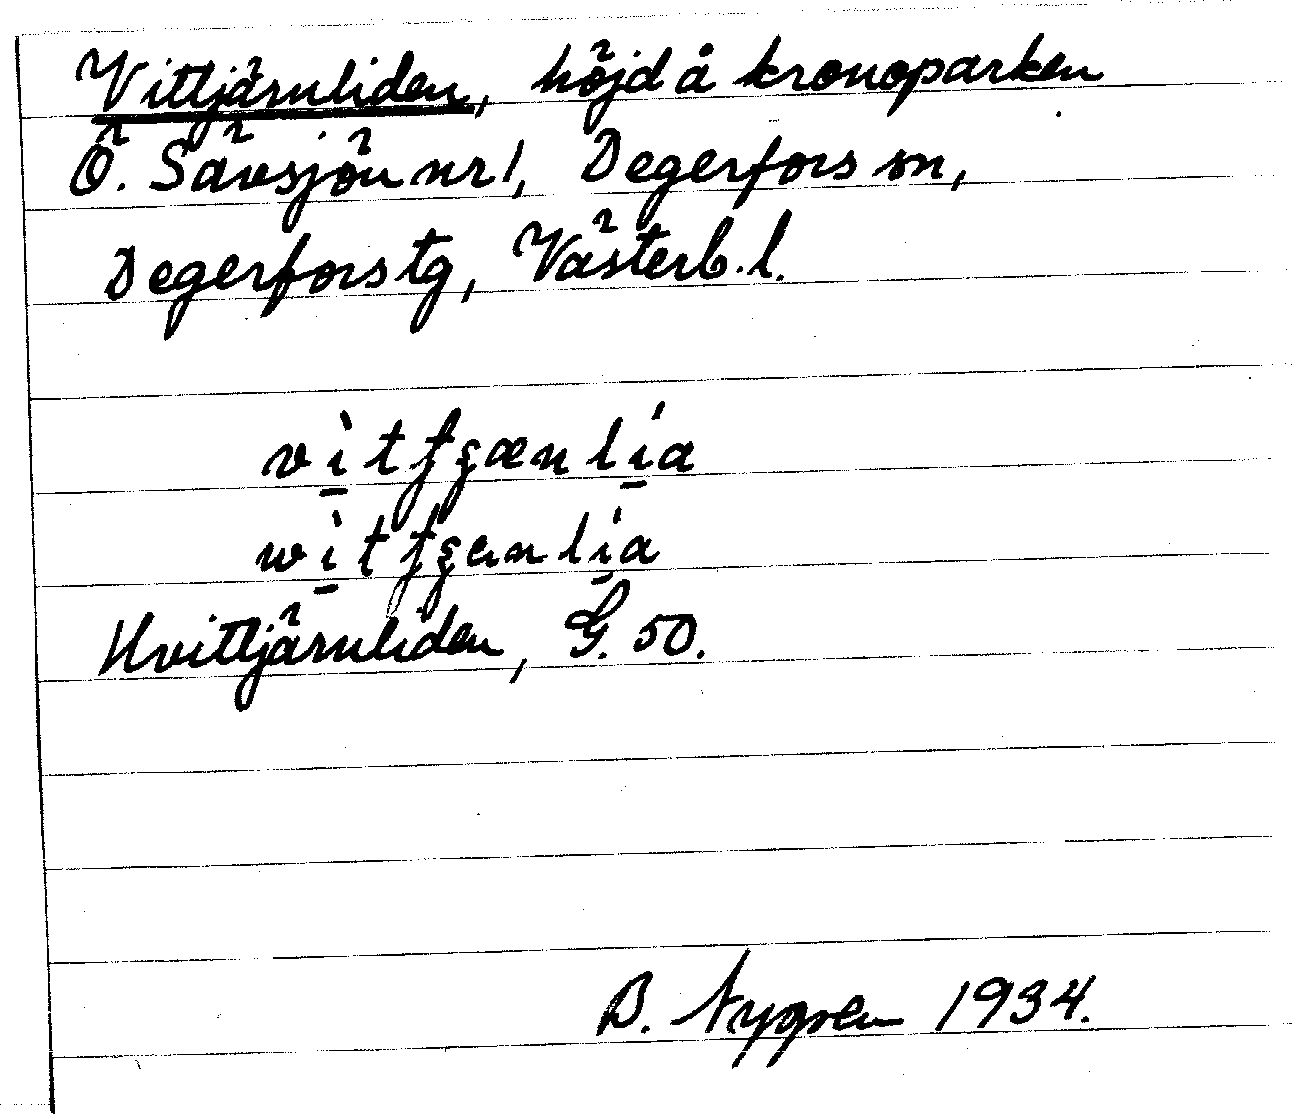 Vittjärnliden, höjd å kronoparken
Ö. Sävsjön nr 1, Degerfors sn,
Degerfors tg, Västerb. l.
Hvittjärnliden, G. 50.
B. Nygren 1934.